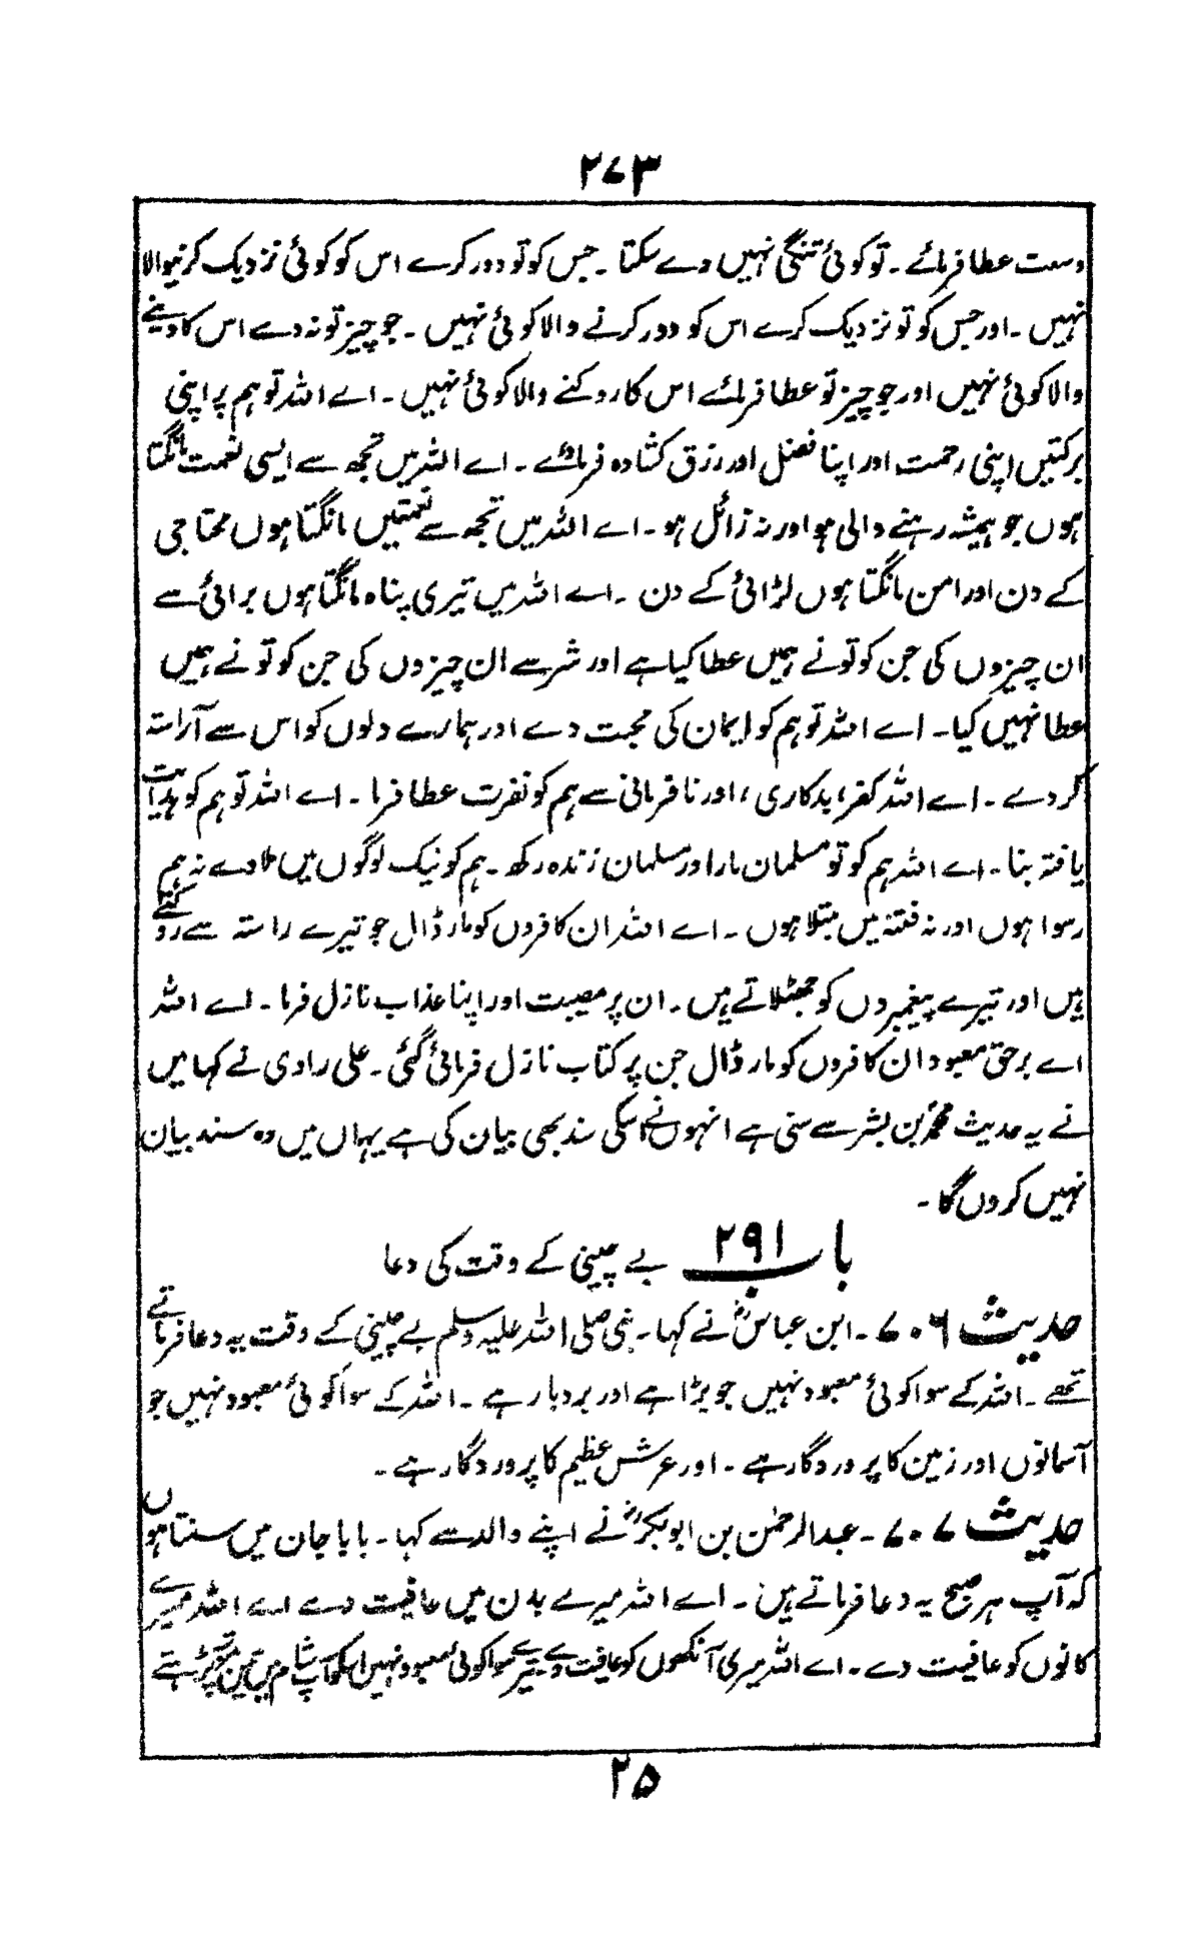 ۲۷۳
وسعت عطا فرمائے ۔ تو کوئی تنگی نہیں دے سکتا ۔ جس کو تو دور کرے اس کو کوئی نزدیک کرنیوالا
نہیں ۔ اور جس کو تو نزدیک کرے اس کو دور کرنے والا کوئی نہیں ۔ جو چیز تو نہ دے اس کا دینے
والا کوئی نہیں اور جو چیز تو عطا فرمائے اس کا روکنے والا کوئی نہیں ۔ اے اللہ تو ہم پر اپنی
برکتیں اپنی رحمت اور اپنا فضل اور رزق کشادہ فرمائے ۔ اے اللہ میں تجھ سے ایسی نعمت مانگتا
ہوں جو ہمیشہ رہنے والی ہو اور نہ زائل ہو ۔ اے اللہ میں تجھ سے نعمتیں مانگتا ہوں محتاجی
کے دن اور امن مانگتا ہوں لڑائی کے دن ۔ اے اللہ میں تیری پناہ مانگتا ہوں برائی سے
ان چیزوں کی جن کو تونے ہمیں عطا کیا ہے اور شر سے ان چیزوں کی جن کو تونے ہمیں
عطا نہیں کیا ۔ اے اللہ تو ہم کو ایمان کی محبت دے اور ہمارے دلوں کو اس سے آراستہ
کر دے ۔ اے اللہ کفر، بدکاری، اور نافرمانی سے ہم کو نفرت عطا فرما ۔ اے اللہ تو ہم کو ہدایت
یافتہ بنا ۔ اے اللہ ہم کو تو مسلمان مار اور مسلمان زندہ رکھ ۔ ہم کو نیک لوگوں میں ملا دے نہ ہم
رسوا ہوں اور نہ فتنہ میں مبتلا ہوں ۔ اے اللہ ان کافروں کو مار ڈال جو تیرے راستہ سے روکتے
ہیں اور تیرے پیغمبروں کو جھٹلاتے ہیں ۔ ان پر مصیبت اور اپنا عذاب نازل فرما ۔ اے اللہ
اے برحق معبود ان کافروں کو مار ڈال جن پر کتاب نازل فرمائی گئی ۔ علی راوی نے کہا میں
نے یہ حدیث محمد بن بشر سے سنی ہے انہوں نے اسکی سند بھی بیان کی ہے یہاں میں وہ سند بیان
نہیں کروں گا ۔
باب ۲۹۱ بے چینی کے وقت کی دعا
حدیث ۷۰۶ ۔ ابن عباسؓ نے کہا ۔ نبی صلی اللہ علیہ وسلم بے چینی کے وقت یہ دعا فرماتے
تھے ۔ اللہ کے سوا کوئی معبود نہیں جو بڑا ہے اور بردبار ہے ۔ اللہ کے سوا کوئی معبود نہیں جو
آسمانوں اور زمین کا پروردگار ہے ۔ اور عرش عظیم کا پروردگار ہے ۔
حدیث ۷۰۷ ۔ عبدالرحمٰن بن ابوبکرؓ نے اپنے والد سے کہا ۔ بابا جان میں سنتا ہوں
کہ آپ ہر صبح یہ دعا فرماتے ہیں ۔ اے اللہ میرے بدن میں عافیت دے اے اللہ میرے
کانوں کو عافیت دے ۔ اے اللہ میری آنکھوں کو عافیت دے تیرے سوا کوئی معبود نہیں اسکو آپ شام میں تین مرتبہ پڑھتے
۲۵